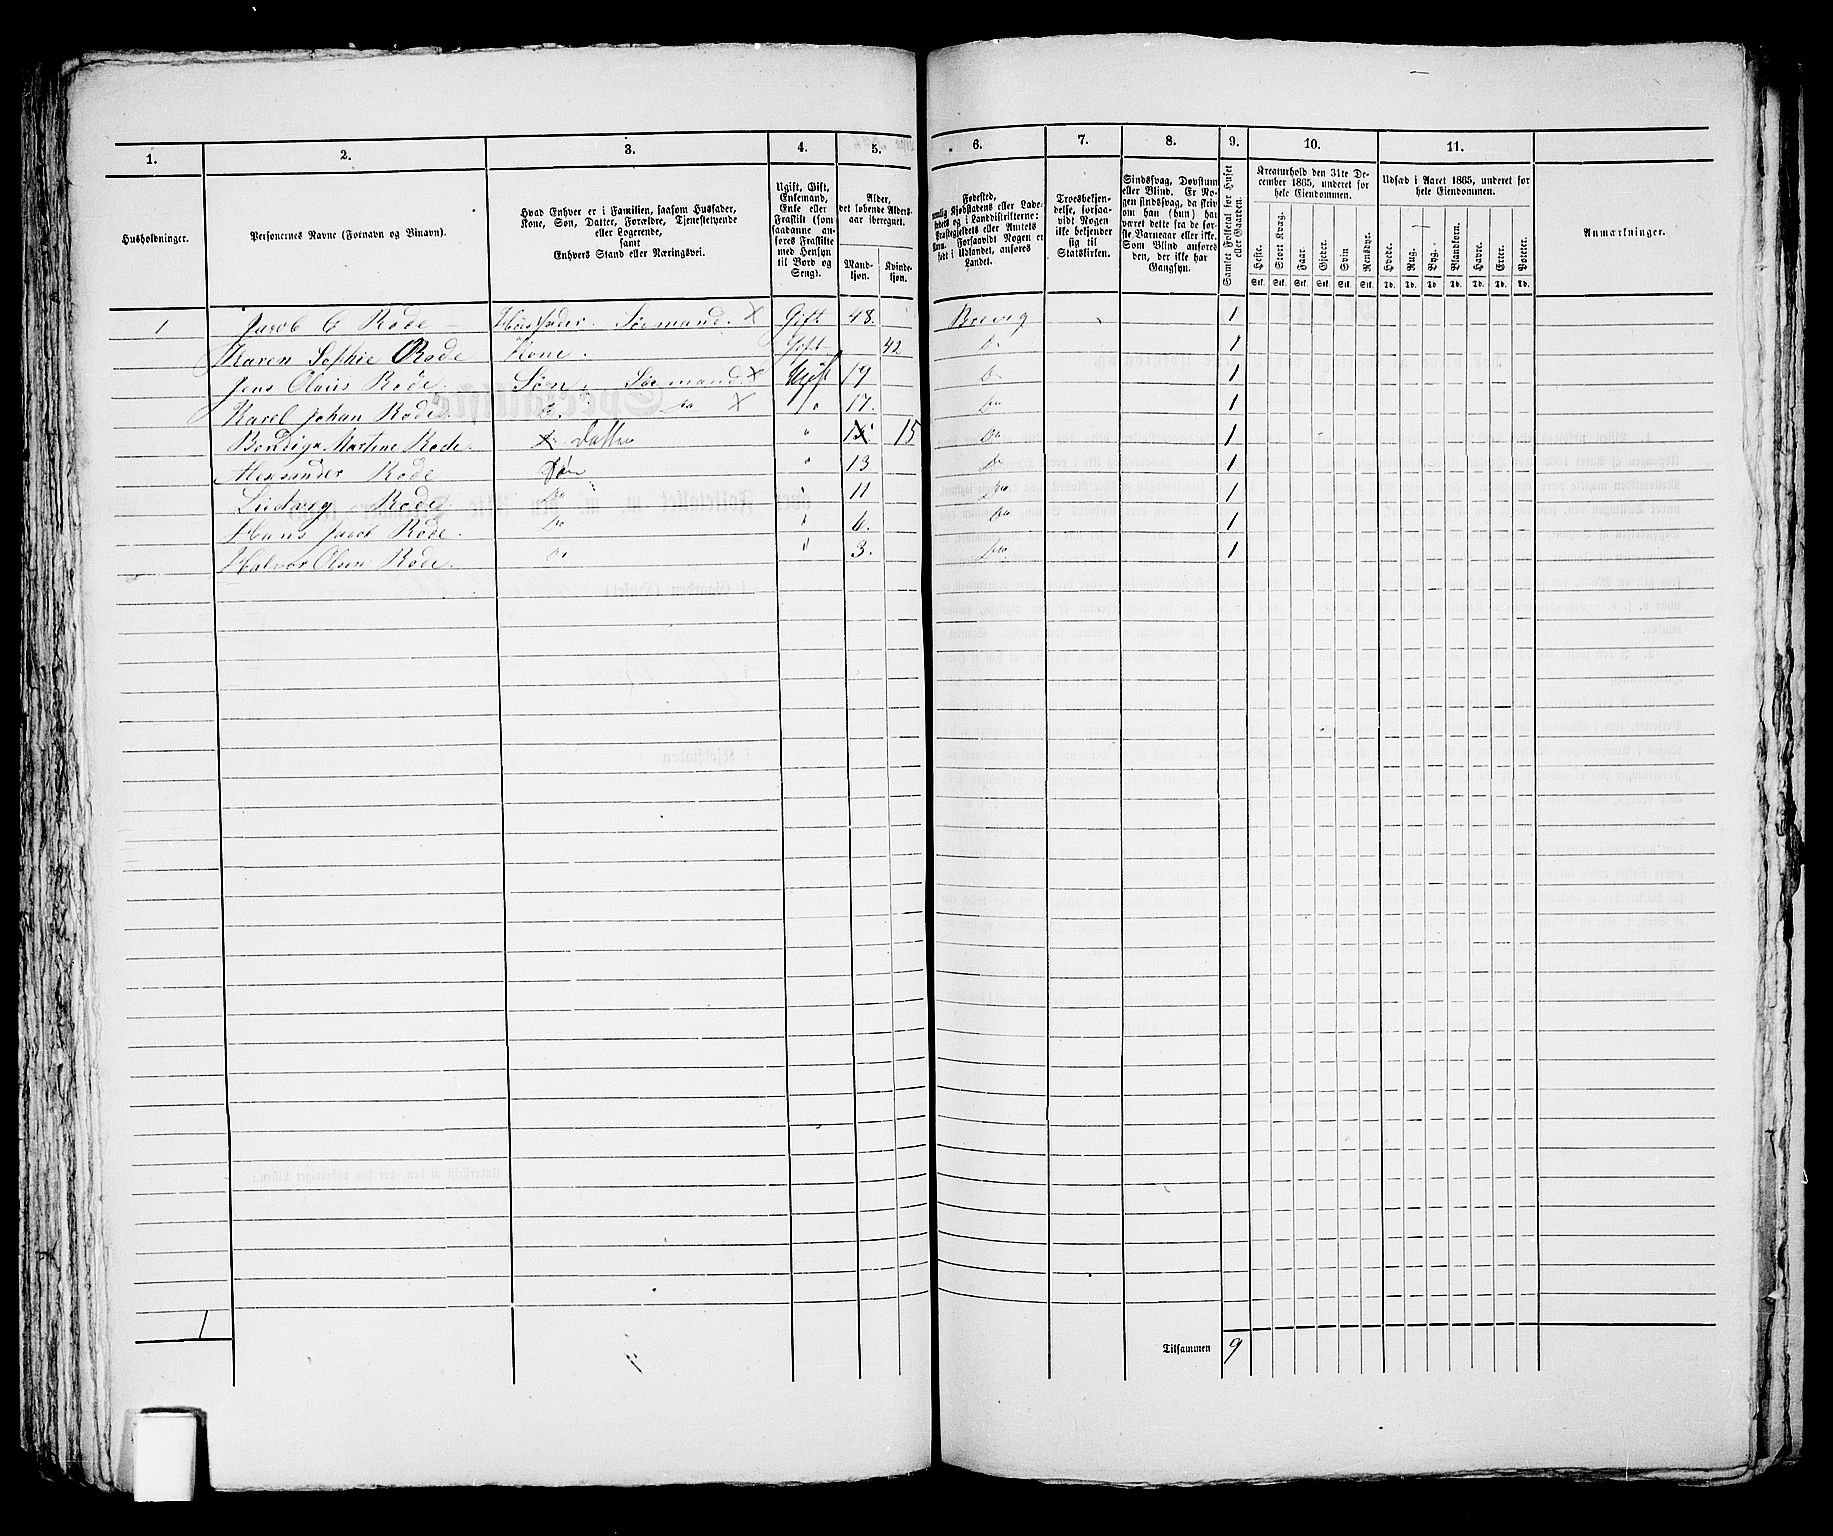 1. 2. 3. 4. 5. 6. 7. 8. 9. 10. 11.
Husholdninger.
Personernes Navne (Fornavn og Binavn).
Hvad Enhver er i Familien, saasom Husfader,
Kone, Søn, Datter, Forældre, Tjenestetyende
eller Logerende,
samt
Enhvers Stand eller Næringsvei.
Ugift, Gift,
Enkemand,
Enke eller
Fraskilt (som
saadanne an-
føres Fraskilte
med Hensyn
til Bord og
Seng).
Alder,
det løbende Alders-
aar iberegnet.
Mand-
kjøn.
Kvinde-
kjøn.
Fødested,
Landet.
Troesbekjen-
delse, forsaa-
vidt Nogen
ikke bekjender
sig til
Statskirken.
Sindssvag, Døvstum
eller Blind. Er No-
gen sindssvag, da skriv
om han (hun) har
været dette fra de før-
ste Barneaar eller ikke.
Som Blind anføres
den, der ikke har
Gangsyn.
Samlet Folketal for Huset
eller Gaarden.
Kreaturhold den 31te De-
cember 1865, underet for
hele Eiendommen.
Heste. Stort Kvæg. Faar. Gjeder. Svin Rensdyr.
Stk. Stk. Stk. Stk. Stk. Stk.
Udsæd i Aaret 1865, underet for
hele Eiendommen.
Hvede. Rug. Byg. Blandkorn. Havre. Erter. Poteter.
Td. Td. Td. Td. Td. Td. Td.
Anmærkninger.
1 Jacob C Rode Husfader. Sømand. X Gift 48. Brevig 1
Karen Sophie Rode Kone. Gift 42 Do 1
Jens Olaus Rode. Søn. Sømand. X Ugift 19 Do 1
Karel Johan Rode Do. Do X " 17. Do 1
Martine Rode. Datter " 15 Do 1
Alexander Rode Søn " 13 Do 1
Ludvig Rode. Do " 11 Do 1
Hans Jacob Rode. Do " 6. Do 1
Halvor Olsen Rode. Do " 3. Do 1
1
Tilsammen 9